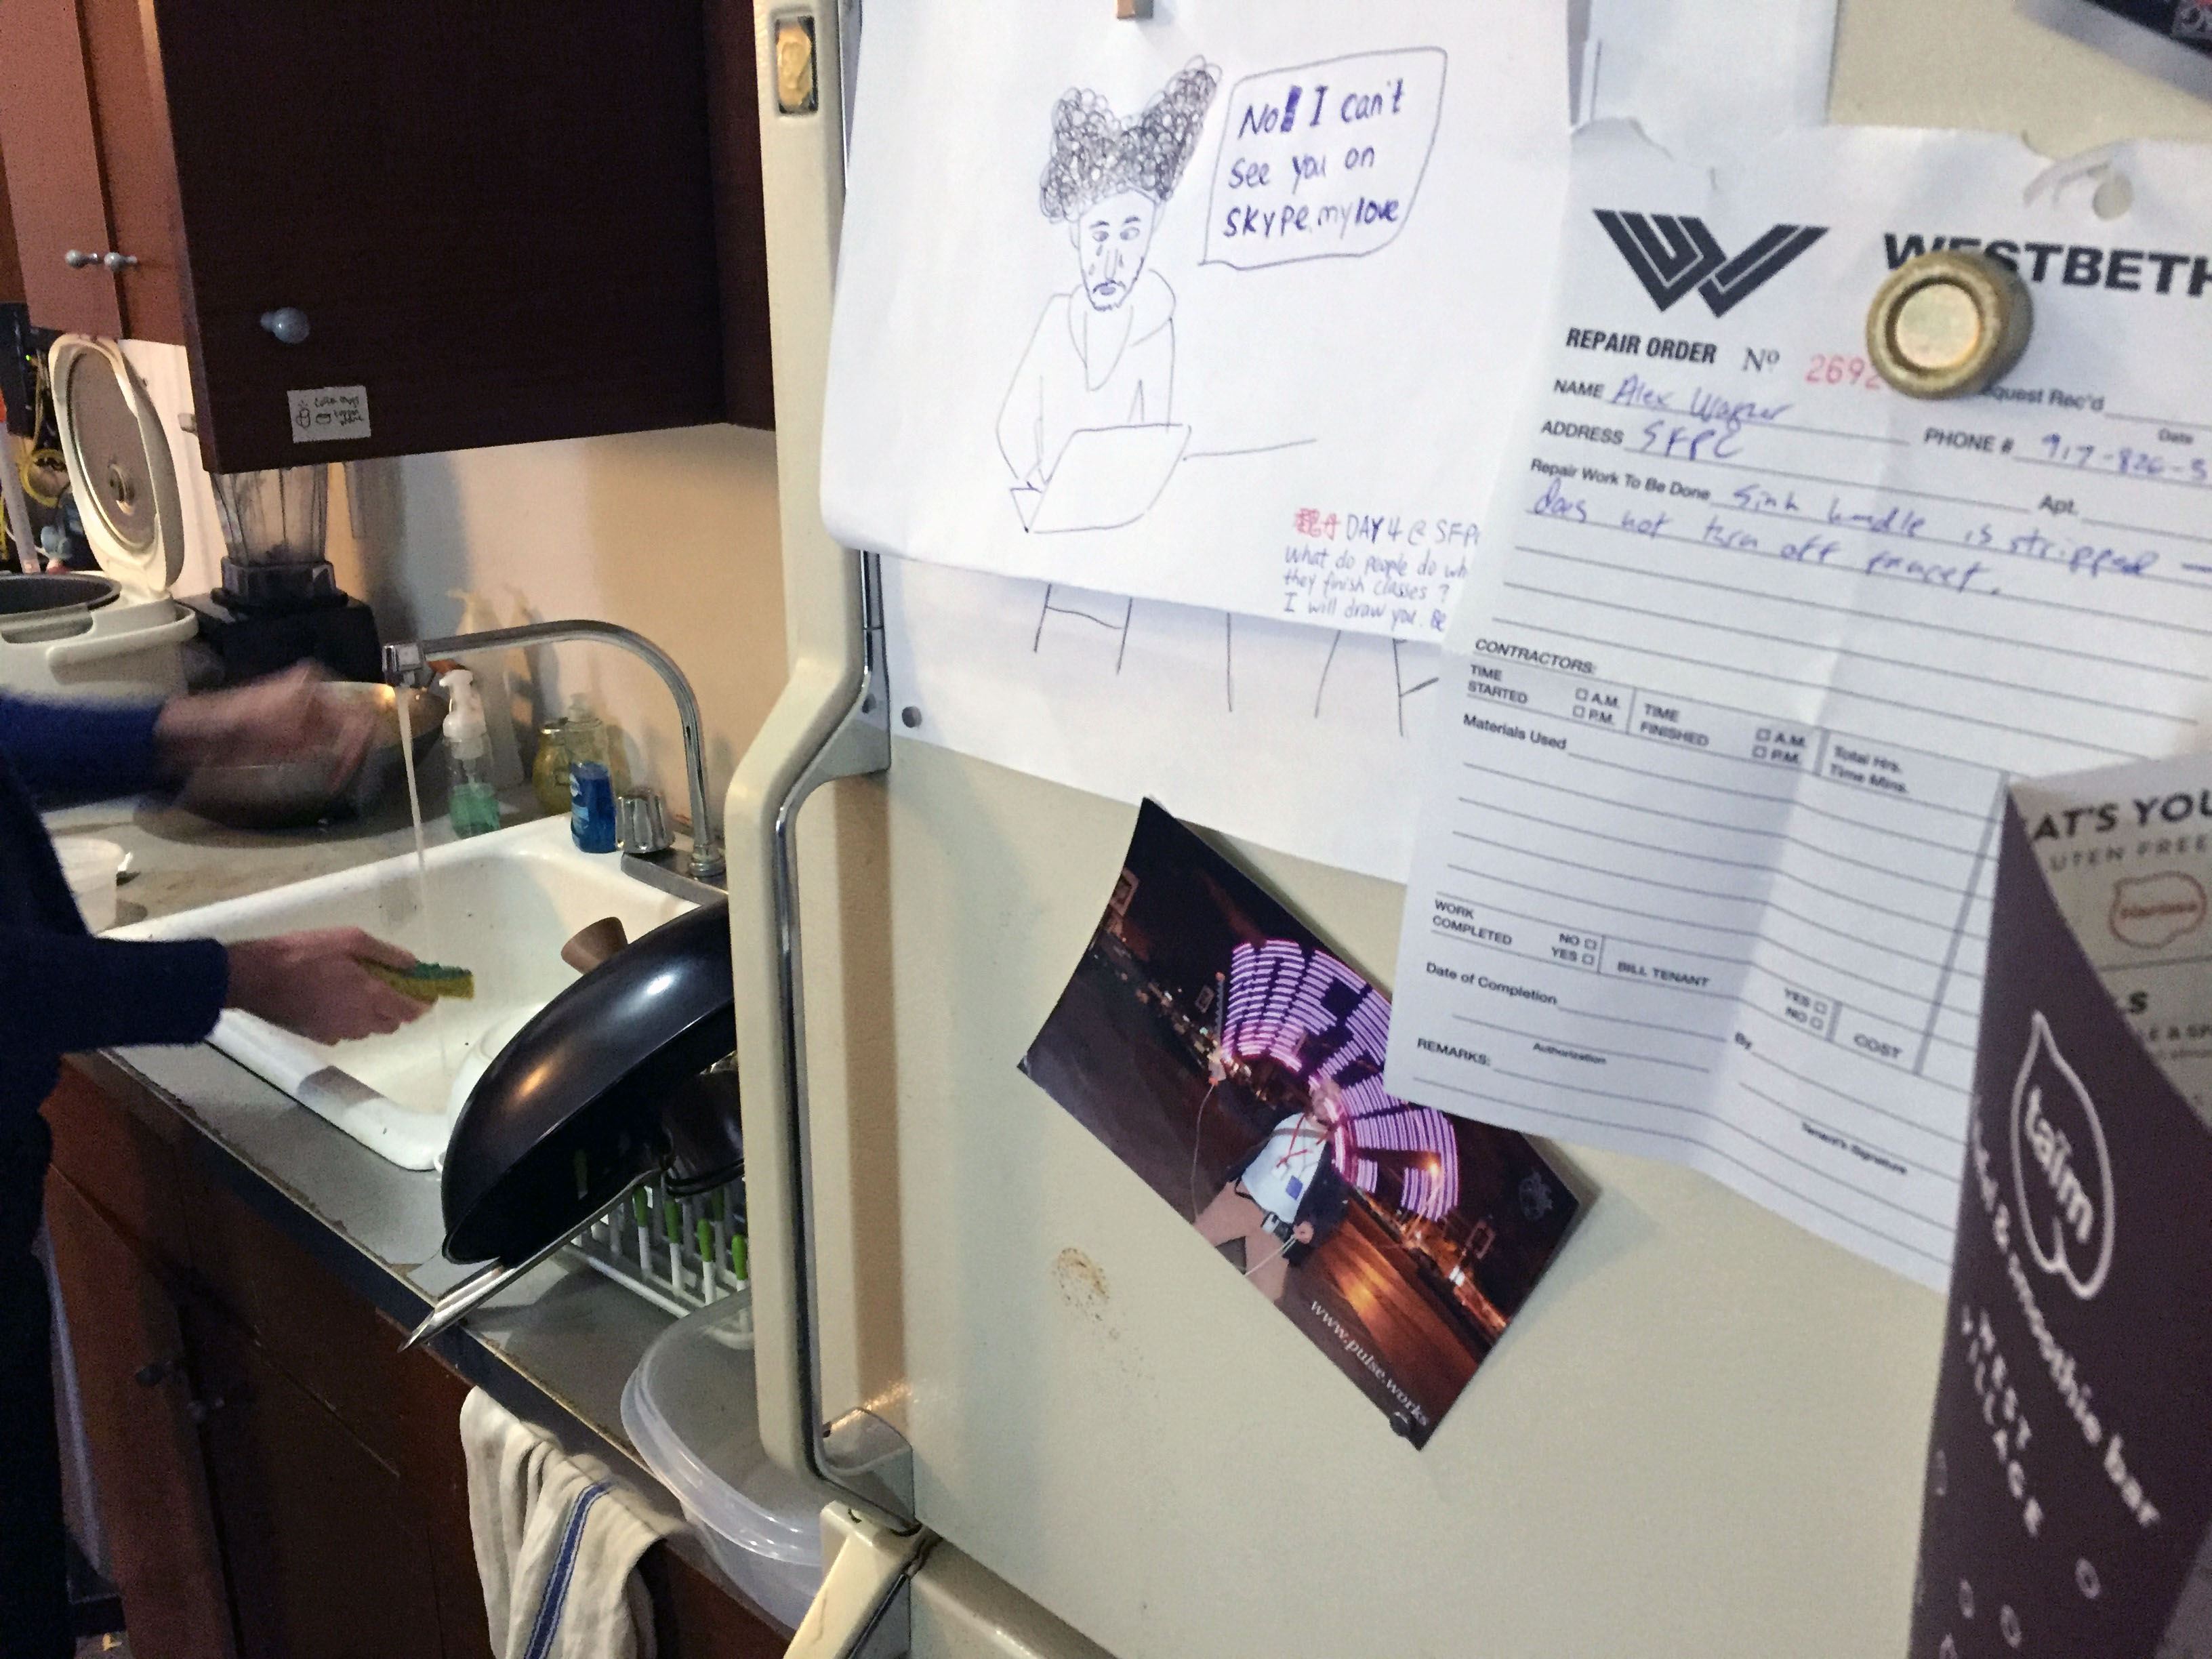 No I can't
see you on
skype, my love
DAY 4 @ SFPC
what do people do wh
they finish classes?
I will draw you. Be
WESTBETH
REPAIR ORDER Nº 2692
Request Rec'd
Date
NAME Alex Wagner
ADDRESS SFPC
PHONE # 917-826-5
Apt.
Repair Work To Be Done Sink handle is stripped —
does not turn off faucet.
CONTRACTORS:
TIME STARTED A.M. P.M.
TIME FINISHED A.M. P.M.
Total Hrs.
Time Mins.
Materials Used
WORK COMPLETED NO YES
BILL TENANT YES NO
COST
Date of Completion
By
Authorization
REMARKS:
Tenant's Signature
www.pulse.works
AT'S YOU
UTEN FREE
LS
taïm
& smoothie bar
WEST
VILLAGE